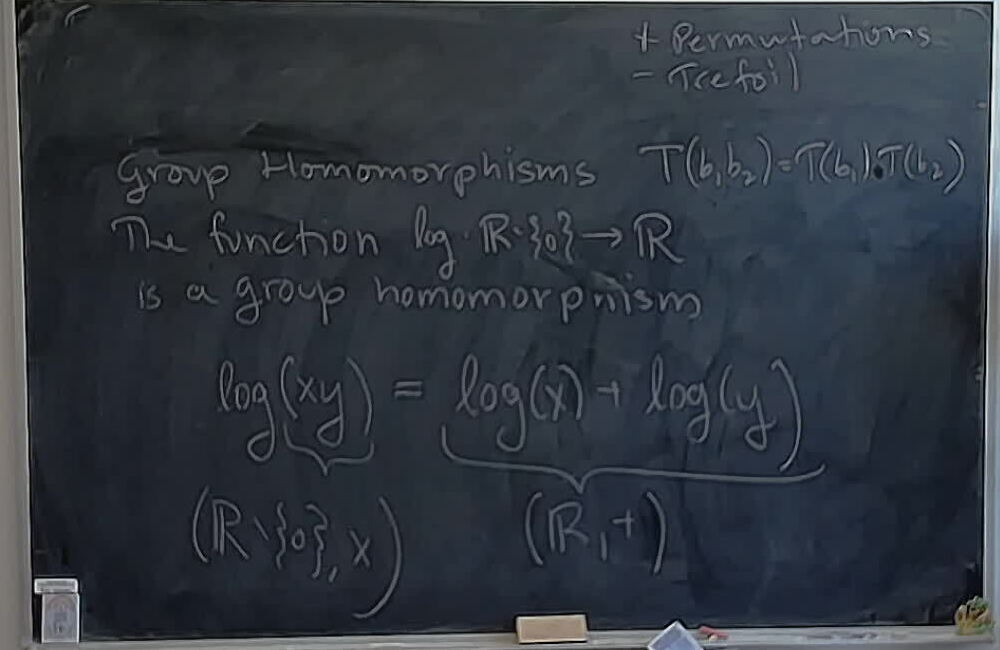 + Permutations
- Trefoil
Group Homomorphisms T(b₁b₂)=T(b₁)·T(b₂)
The function log: ℝ∖{0}→ℝ
is a group homomorphism
log(xy) = log(x) + log(y)
(ℝ∖{0}, ×) (ℝ, +)